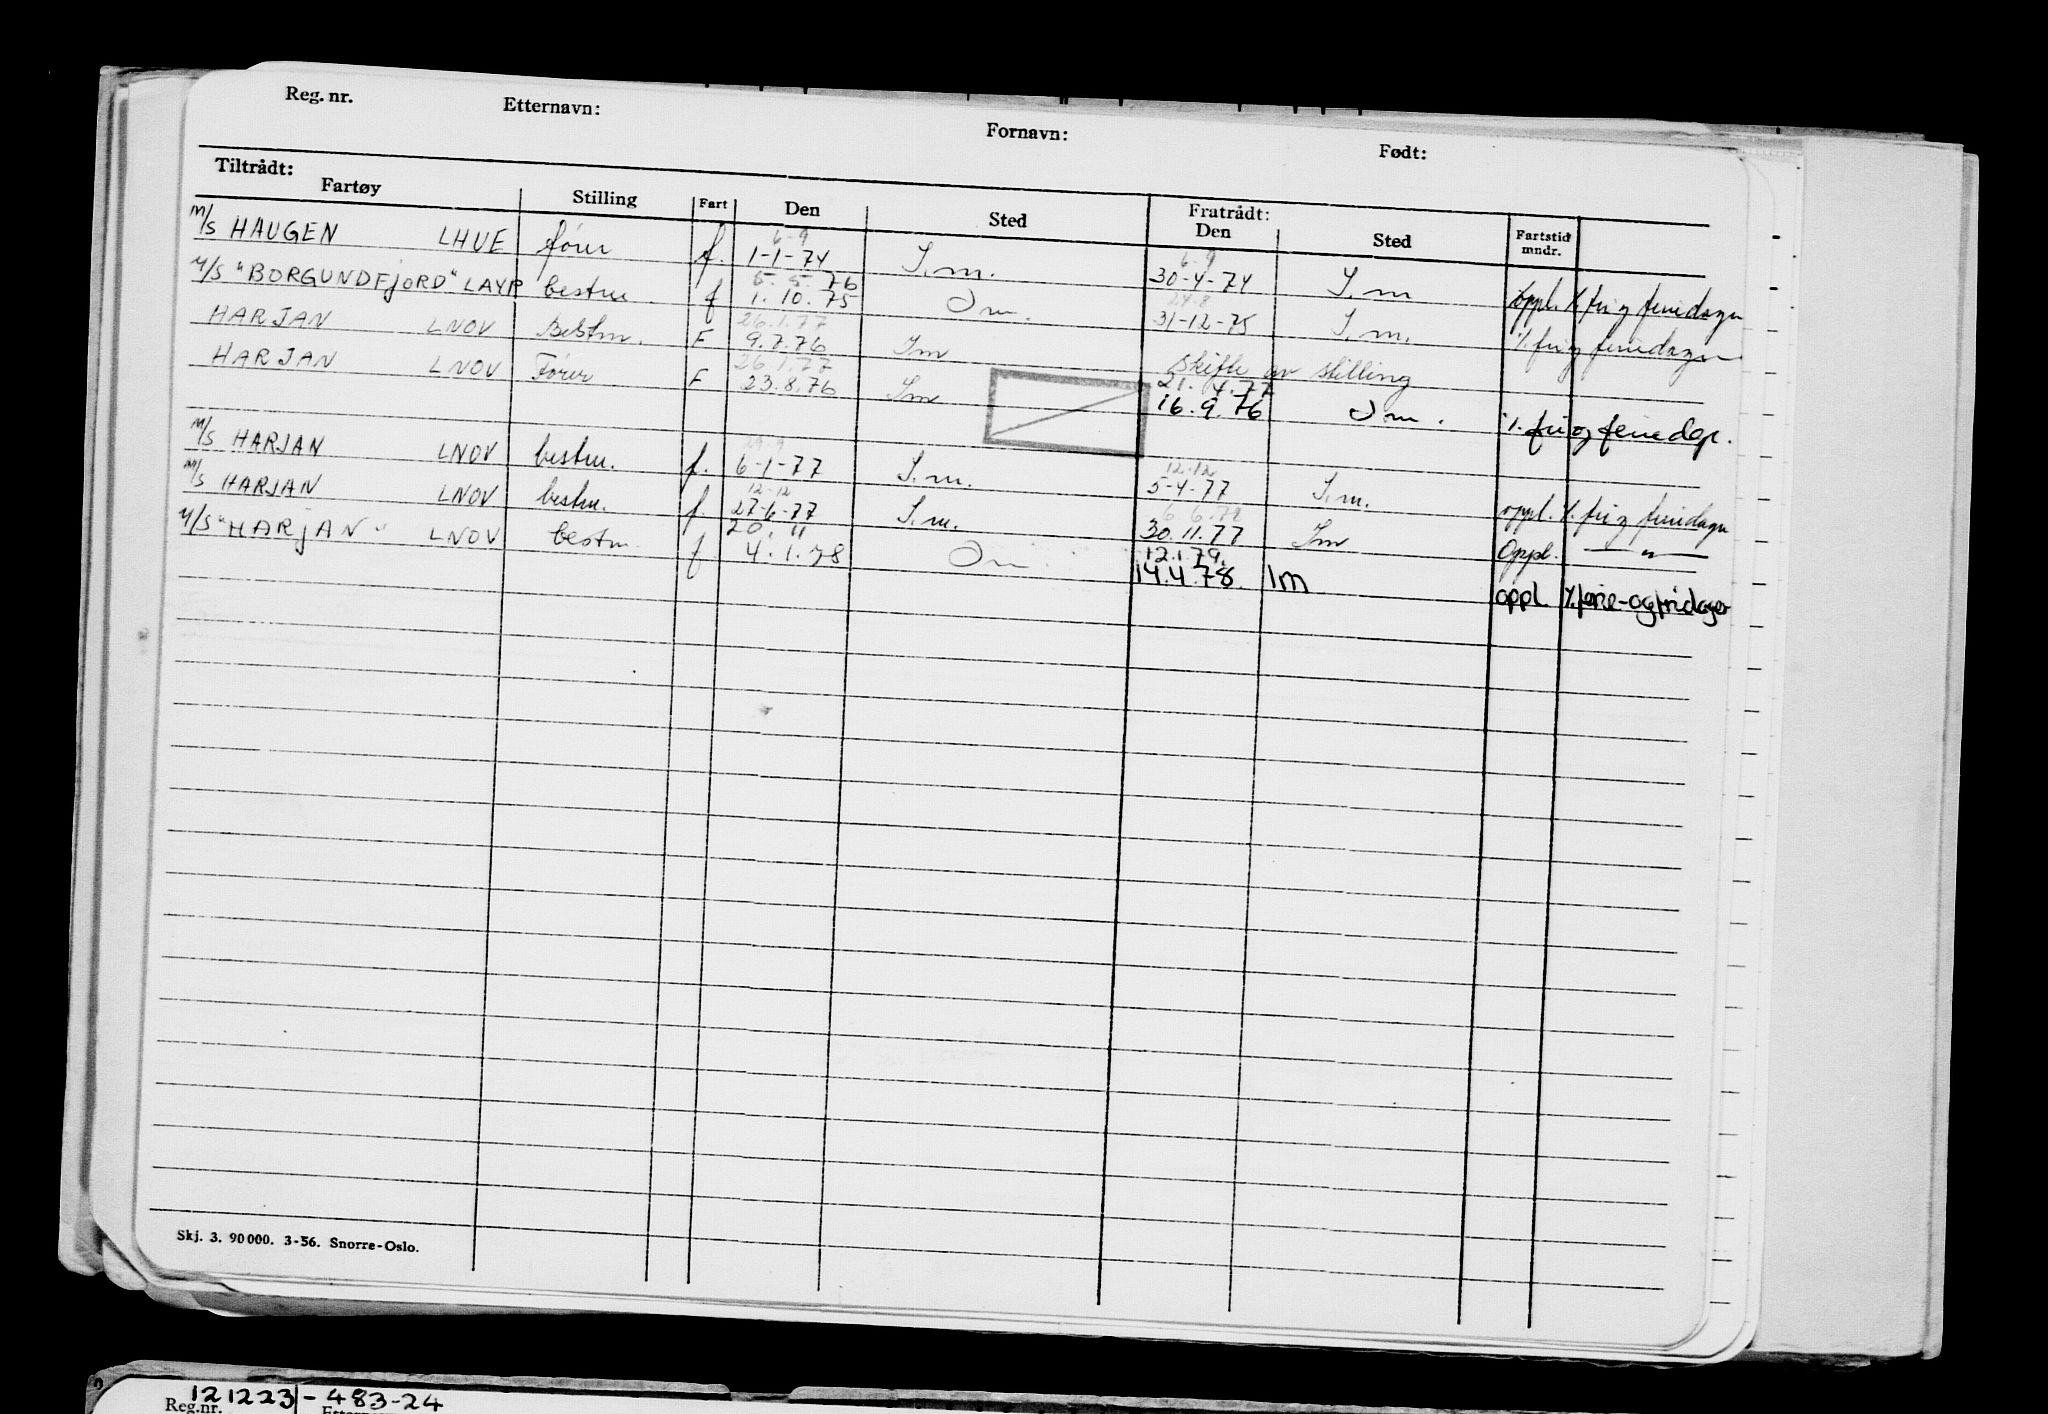 Reg. nr. Etternavn: Fornavn: Født:
Tiltrådt: Fratrådt:
Fartøy Stilling Fart Den Sted Den Sted Fartstid mndr.
6-9 6-9
M/S HAUGEN LHUE fører f. 1-1-74 I.m. 30-4-74 I.m oppl. % fri og feriedager
5. 5. 76 24.8
M/S "BORGUNDFJORD" LAYP bestm f 1. 10. 75 Im. 31-12-75 I.m. % fri og feriedager
26.1.77
HARJAN LNOV Bestm. F 9.7.76 Im Skifte av stilling
26.1.77 21. 4. 77
HARJAN LNOV Fører F 23.8.76 Im 16. 9. 76 Im. % fri og feriedgr.
12-12
M/S HARJAN LNOV bestm. f. 6-1-77 I.m. 5-4-77 I.m. oppl. % fri og feriedager
12-12 6 6.78
M/S HARJAN LNOV bestm. f. 27-6-77 I.m. 30.11.77 Im Oppl. — " —
20. " 12.1.79.
M/S "HARJAN" LNOV bestm f 4.1.78 Im 14.4.78 Im oppl. % ferie-og fridager
Skj. 3. 90 000. 3-56. Snorre-Oslo.
121223-483-24
Reg.nr.